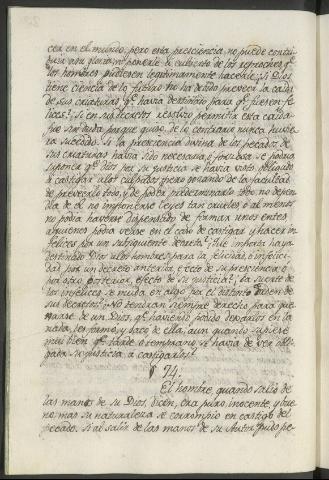 cer en el mundo, pero esta presciencia, no puede contri-
buir a su gloria, ni ponerle à cubierto de los reproches qe
los hombres pudiesen legitimamente hacerle. Si Dios
tiene ciencia de lo futuro no ha debido preveer la caida
de sus criaturas qe havia destinado para qe fuesen fe-
lices? Si en sus decretos resolvió permitir esta caida
fue sin duda porque quiso, de lo contrario nunca hubie-
ra sucedido. Si la presciencia divina de los pecados de
sus criaturas havia sido necesaria, ò forzosa se podria
suponer qe Dios por su justicia se havia visto obligado
à castigar à los culpados; pero gozando de la facultad
de preveerlo todo, y de poder predeterminarlo todo no depen-
dia de el no imponerse leyes tan crueles, ó al menos
no podia haverse dispensado de formar unos entes
à quienes podia verse en el caso de castigar y hacer in-
felices por un subsiguiente decreto? Que importa haya
destinado Dios à los hombres para la felicidad, ó infelici-
dad por un decreto anterior, efecto de su presciencia, ò
por otro posterior, efecto de su justicia? La suerte de
los infelices se muda en algo por el distinto orden de
sus decretos? No tendrian siempre derecho para que-
xarse de un Dios, qe haviendo podido dexarlos en la
nada, les formó, y sacó de ella, aun quando supiese
mui bien qe tarde ó temprano, se havia de ver obli-
gada su justicia à castigarlos?
§ 74.
El hombre, quando salió de
las manos de su Dios, dicen, era puro, inocente, y bue-
no; mas su naturaleza se corrompió en castigo del
pecado. Si al salir de las manos de su Autor pudo pe-